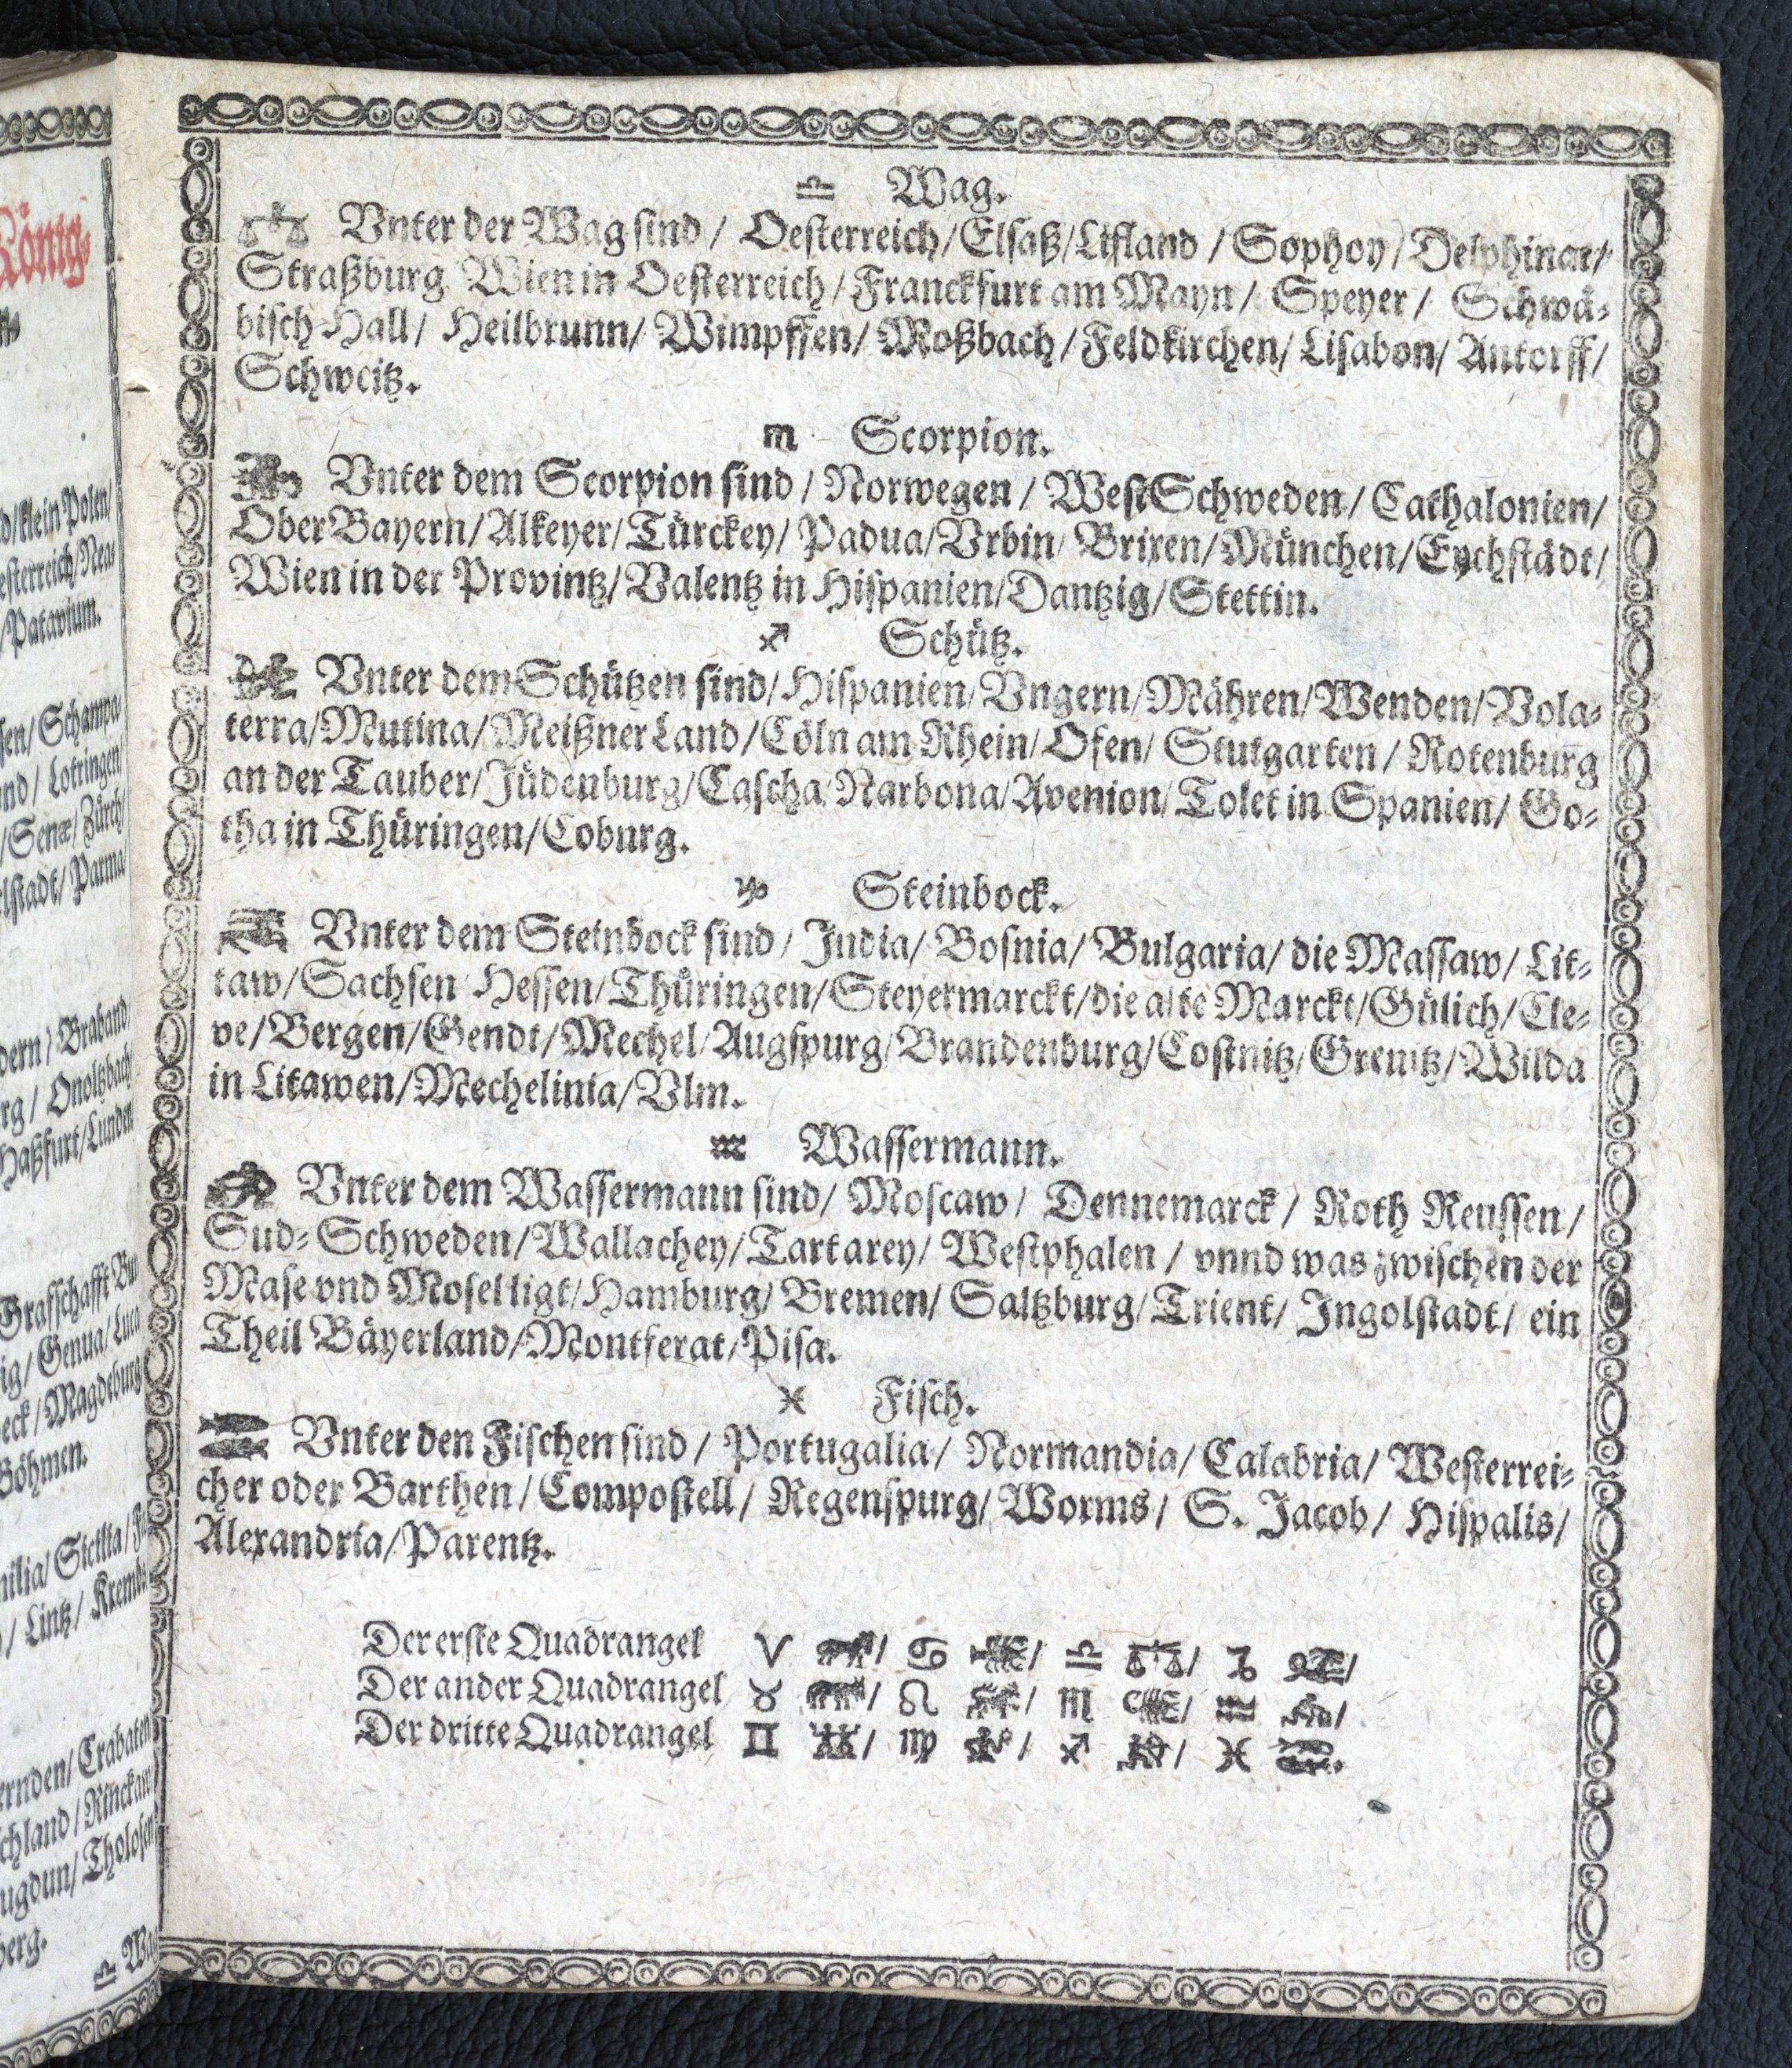 König⸗
d/klein Polen/
esterreich/Nea⸗
/Patavium.
sen/Schampa
nd/Lotringen
/Senæ/Zürch/
lstadt/Parma/
dern/Braband/
rg/Onoltzbach/
Haßfurt/Lunden
Grafschafft Bur
ig/Genua/Luca
eck/Magdeburg
Böhmen.
milia/Sicilia/
/Lintz/Krembs
ernden/Crabaten
schland/Rinckaw/
ugdun/Tholosen/
berg.
♎ Wag
♎ Wag.
Vnter der Wag sind/Oesterreich/Elsaß/Lifland/Sophoy/Delphinat/
Straßburg/Wien in Oesterreich/Franckfurt am Mayn/Speyer/Schwä⸗
bisch Hall/Heilbrunn/Wimpffen/Moßbach/Feldkirchen/Lisabon/Antorff/
Schweitz.
♏ Scorpion.
Vnter dem Scorpion sind/Norwegen/WestSchweden/Cathalonien/
OberBayern/Alkeyer/Türckey/Padua/Vrbin/Brixen/München/Eychstädt/
Wien in der Provintz/Valentz in Hispanien/Dantzig/Stettin.
♐ Schütz.
Vnter dem Schützen sind/Hispanien/Vngern/Mähren/Wenden/Vola⸗
terra/Mutina/Meißner Land/Cöln am Rhein/Ofen/Stutgarten/Rotenburg
an der Tauber/Jüdenburg/Cascha/Narbona/Avenion/Tolet in Spanien/Go⸗
tha in Thüringen/Coburg.
♑ Steinbock.
Vnter dem Steinbock sind/India/Bosnia/Bulgaria/die Massaw/Lit⸗
taw/Sachsen/Hessen/Thüringen/Steyermarckt/die alte Marckt/Gülich/Cle⸗
ve/Bergen/Gendt/Mechel/Augspurg/Brandenburg/Costnitz/Grentz/Wilda
in Litawen/Mechelinia/Vlm.
♒ Wassermann.
Vnter dem Wassermann sind/Moscaw/Dennemarck/Roth Reussen/
Sud⸗Schweden/Wallachey/Tartarey/Westphalen/vnnd was zwischen der
Mase vnd Mosel ligt/Hamburg/Bremen/Saltzburg/Trient/Ingolstadt/ein
Theil Bäyerland/Montferat/Pisa.
♓ Fisch.
Vnter den Fischen sind/Portugalia/Normandia/Calabria/Westerrei⸗
cher oder Barthen/Compostell/Regenspurg/Worms/S. Jacob/Hispalis/
Alexandria/Parentz.
Der erste Quadrangel ♈ / ♋ / ♎ / ♑ /
Der ander Quadrangel ♉ / ♌ / ♏ / ♒ /
Der dritte Quadrangel ♊ / ♍ / ♐ / ♓ .